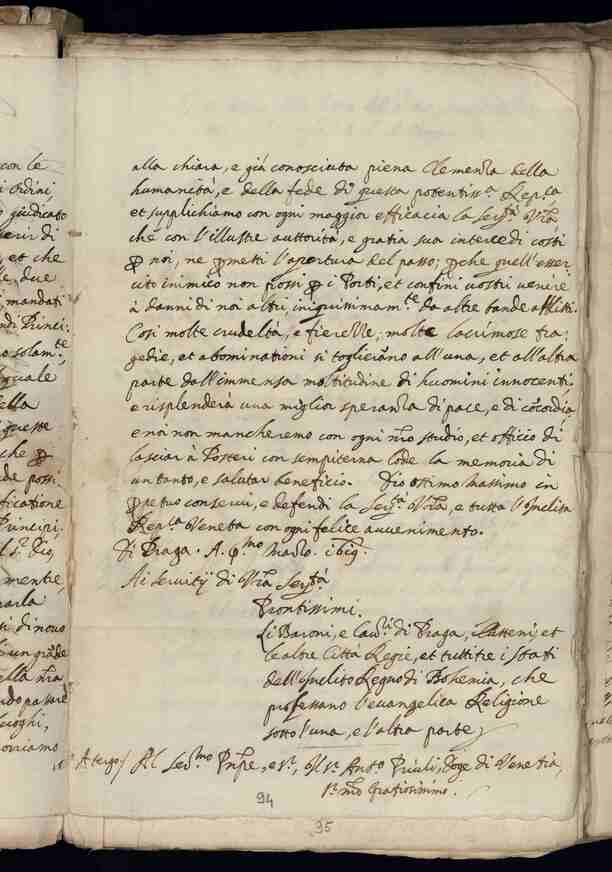 con le
i ordini,
giudicato
et che
due
i mandati
solam.te,
quale
ella
queste
che
possi
ficatione
Principi,
mente,
di nuovo
un grāde
ella n̄ra
do passare
luoghi,
alla chiara, e già conosciuta piena Clemenza della
humanità, e della fede di questa potentiss.a Rep.ca
et supplichiamo con ogni maggior efficacia la Ser.tà V̄ra,
che con l'illustre auttorità, e gratia sua intercedi costì
ꝑ noi, ne ꝑmetti l'apertura del passo; ꝑche quell'esser-
cito inimico non possi ꝑ i Porti, et confini vostri venire
à danni di noi altri, iniquissimam.te da altre bande afflitti.
Così molte crudeltà, e fierezze; molte lacrimose tra-
gedie, et abominationi si toglierāno all'una, et all'altra
parte dall'immensa moltitudine di huomini innocenti,
e risplenderà una miglior speranza di pace, e di cōcordia,
e noi non mancheremo con ogni n̄ro studio, et officio di
lasciar à Posteri con sempiterna lode la memoria di
un tanto, e salutar beneficio. Dio ottimo massimo in
ꝑpetuo conservi, e defendi la Ser.tà V̄ra, e tutta l'Inclita
Rep.ca Veneta con ogni felice avvenimento.
Di Praga. A. p.mo Marzo. 1619.
Ai servitij di V̄ra Ser.tà
Prontissimi.
Li Baroni, e Cav.ri di Praga, et
le altre Città Regie, et tutti tre i Stati
dell'Inclito Regno di Bohemia, che
professano l'evangelica Religione
sotto l'una, e l'altra parte
A tergo / Al Ser.mo Pn̄pe, e S.r, Il S.r Ant.o Priuli, Doge di Venetia,
S.r n̄ro Gratiosissimo.
94
95